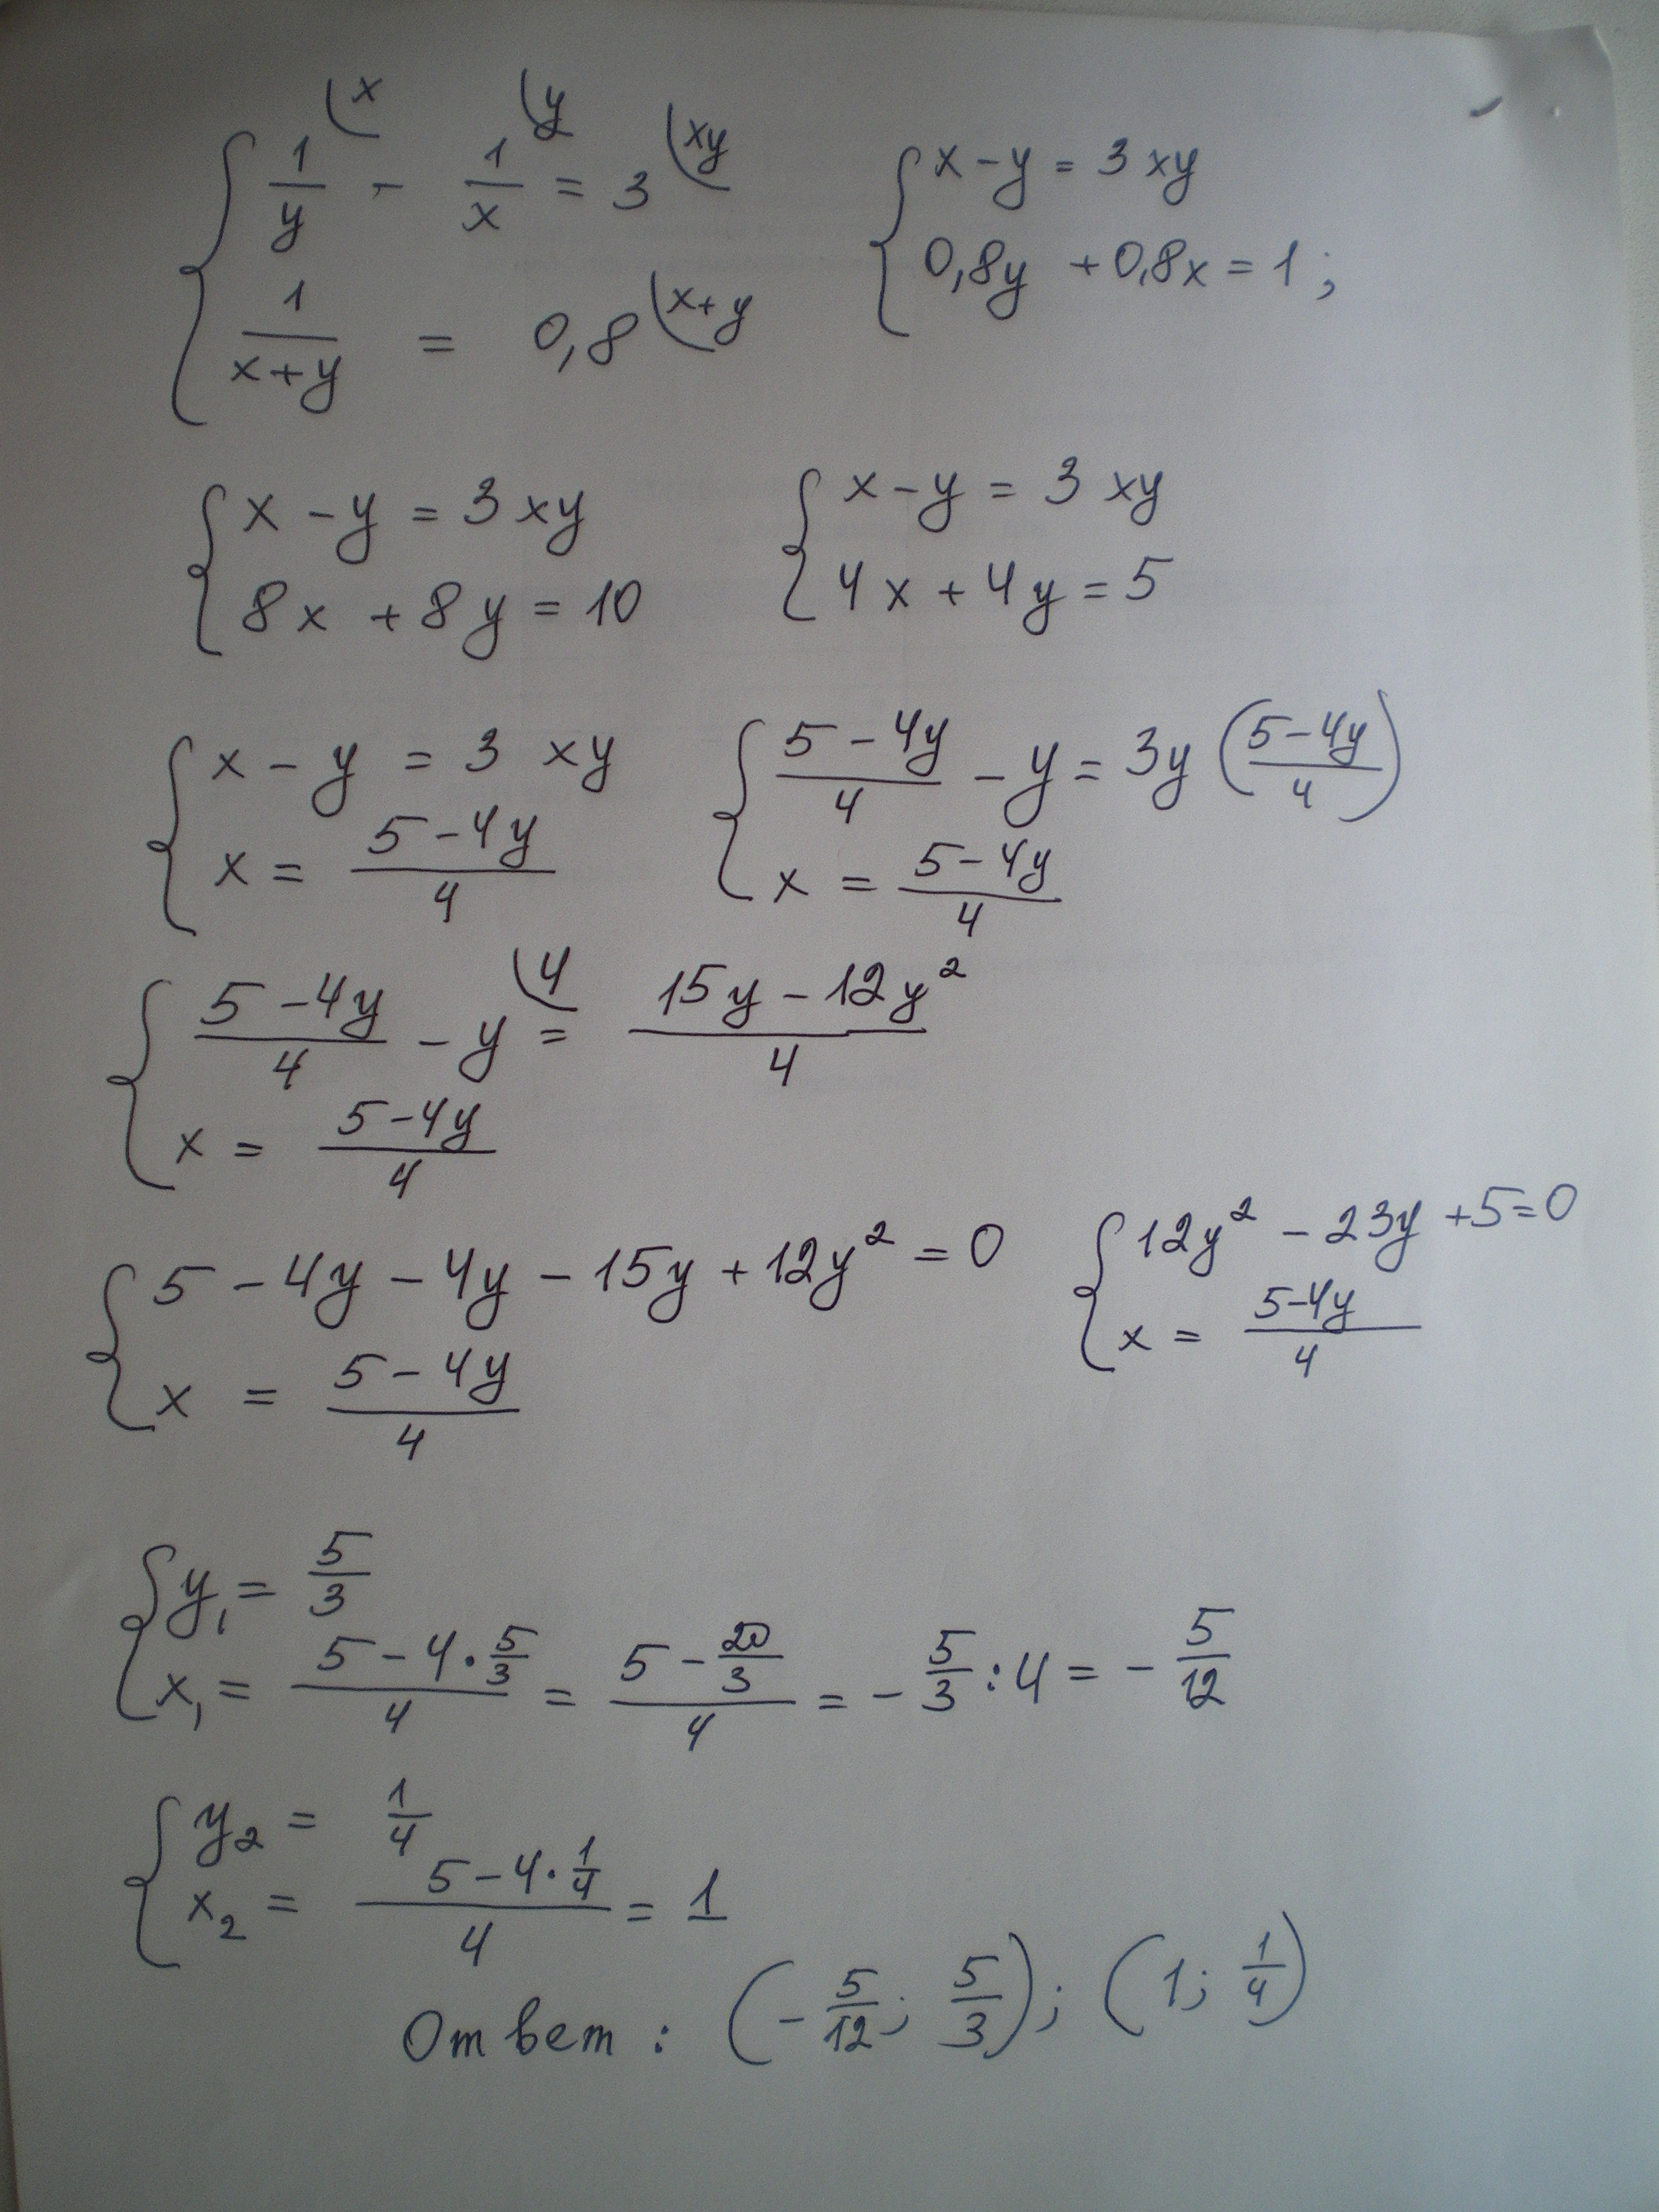 { 1/y (x − 1/x (y = 3 (xy   { x − y = 3xy
1/(x+y) = 0,8 (x+y   0,8y + 0,8x = 1;
{ x − y = 3xy   { x − y = 3xy
8x + 8y = 10   4x + 4y = 5
{ x − y = 3xy   { (5−4y)/4 − y = 3y ((5−4y)/4)
x = (5−4y)/4   x = (5−4y)/4
{ (5−4y)/4 − y (4 = (15y − 12y²)/4
x = (5−4y)/4
{ 5 − 4y − 4y − 15y + 12y² = 0   { 12y² − 23y + 5 = 0
x = (5−4y)/4   x = (5−4y)/4
{ y₁ = 5/3
x₁ = (5−4·5/3)/4 = (5−20/3)/4 = −5/3 : 4 = −5/12
{ y₂ = 1/4
x₂ = (5−4·1/4)/4 = 1
Ответ: (−5/12; 5/3); (1; 1/4)